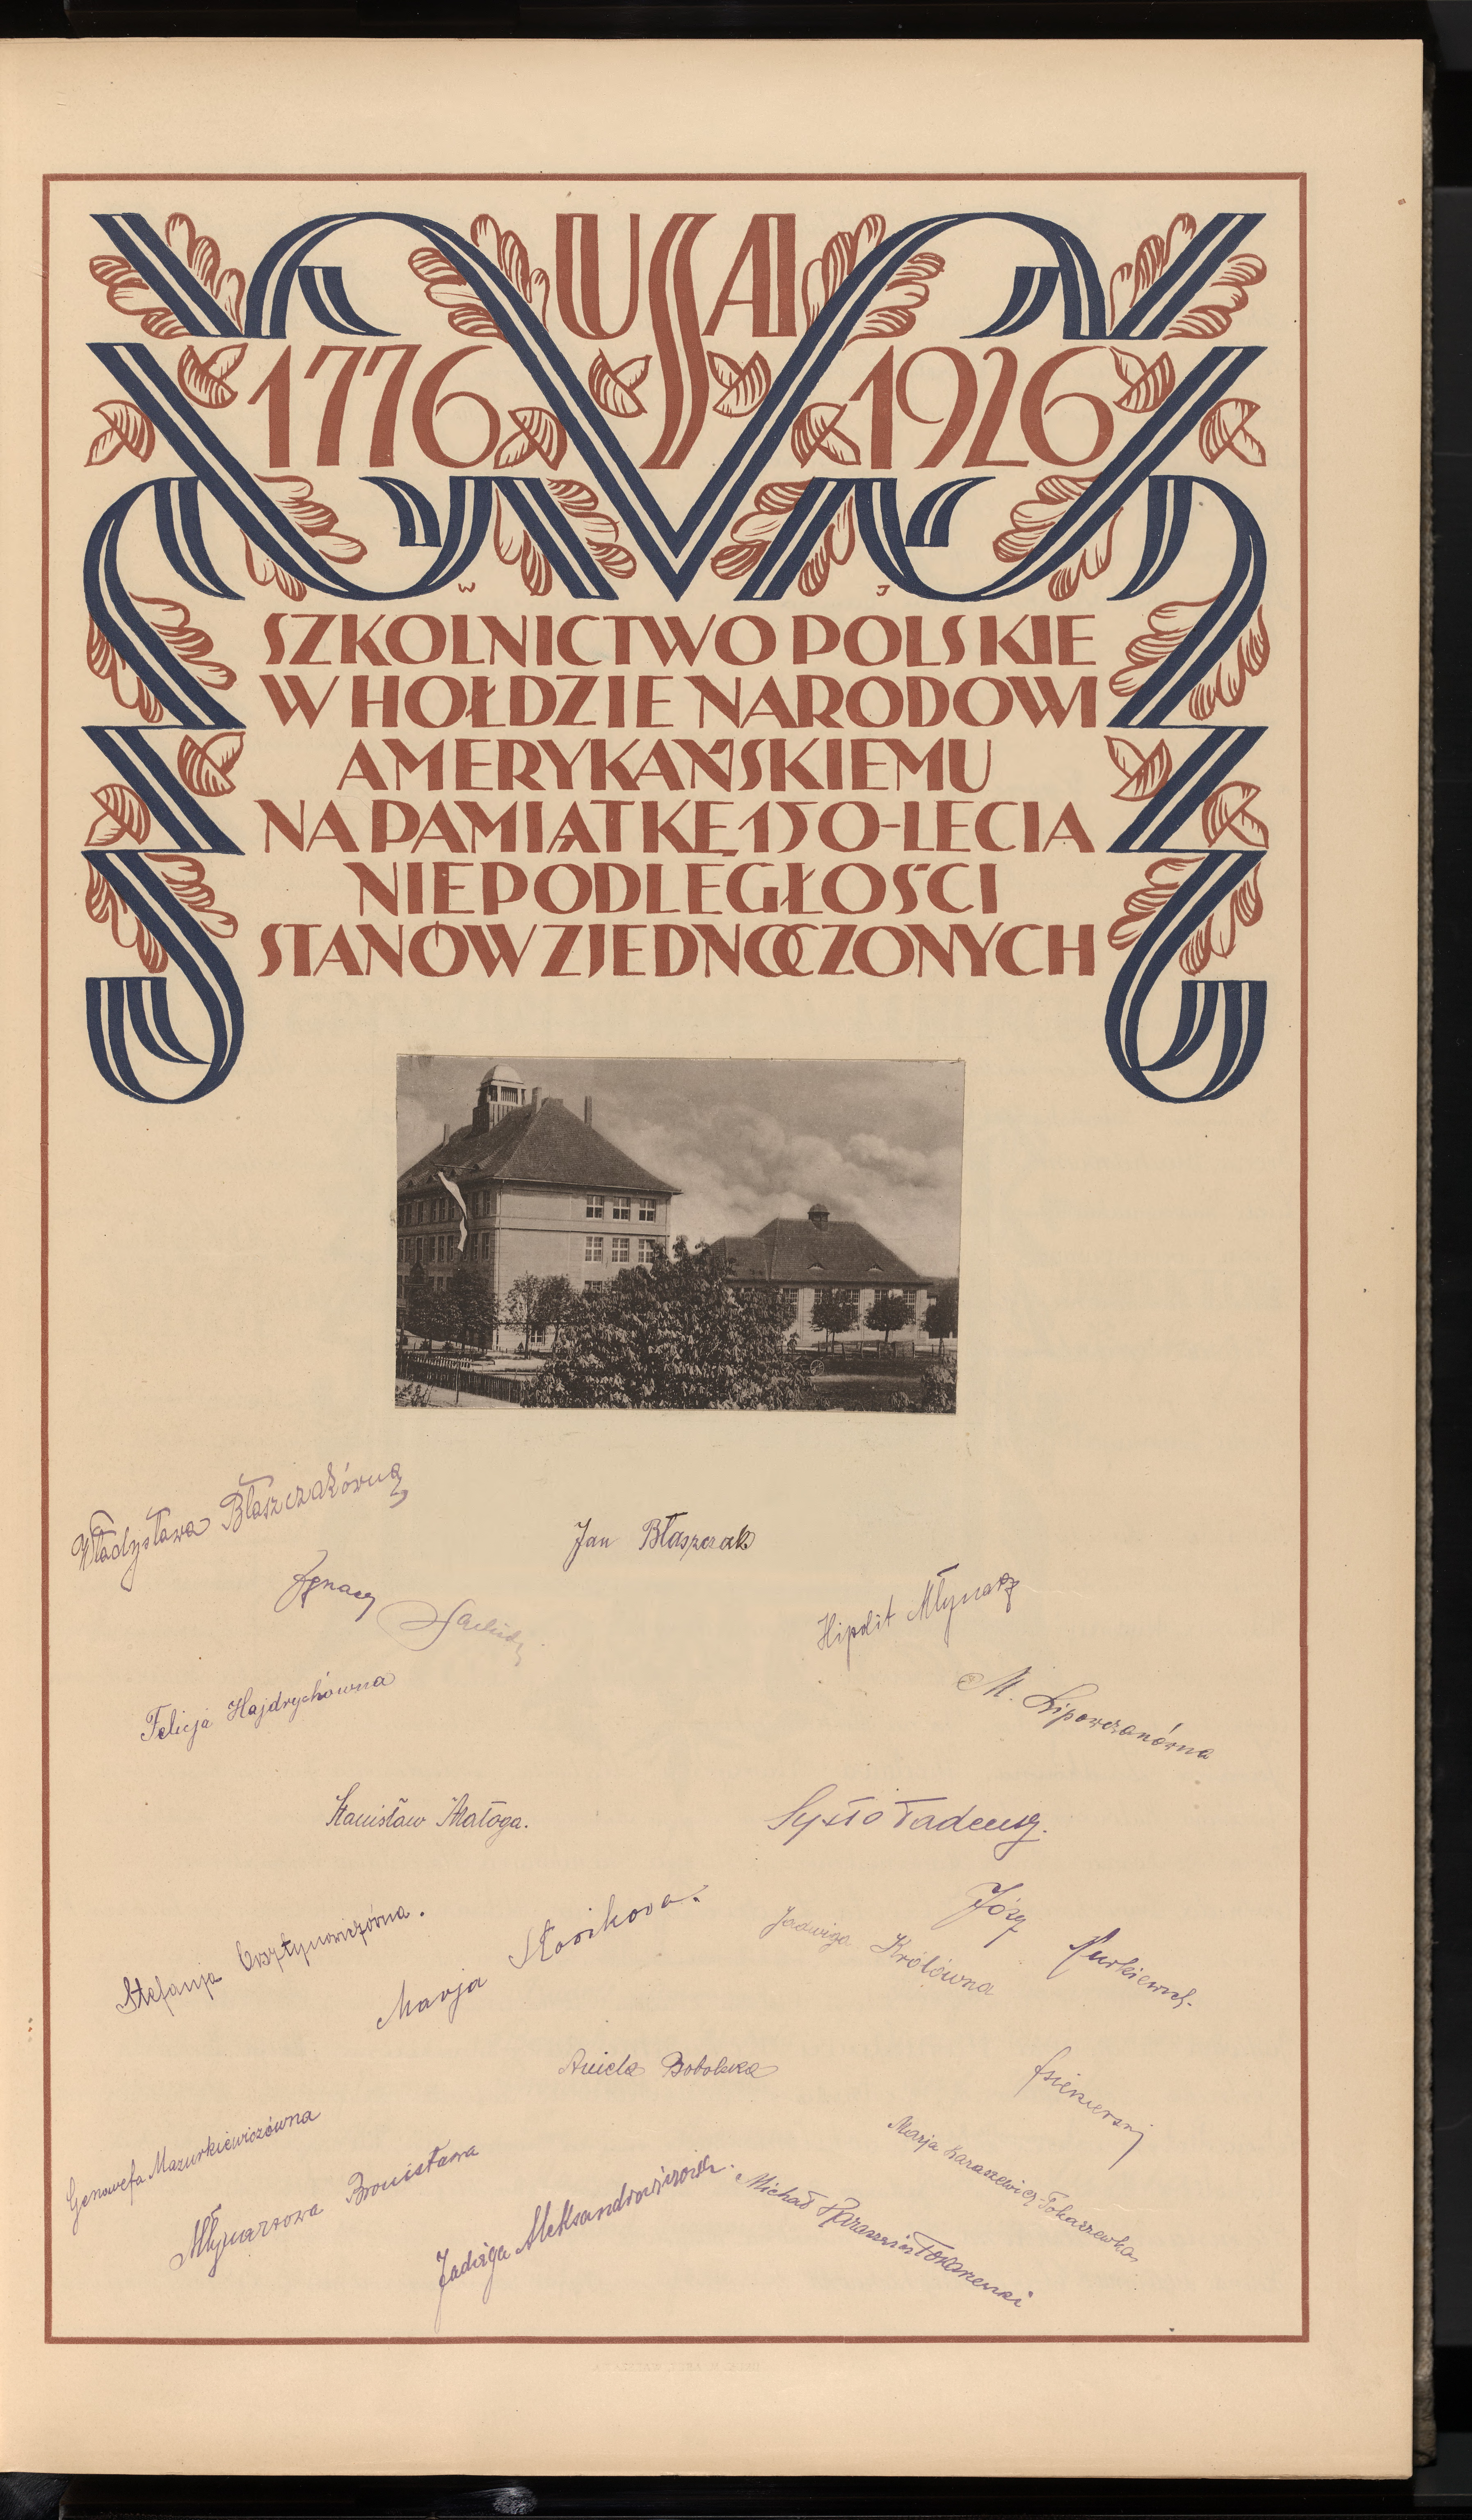 USA
1776 1926
W J
SZKOLNICTWO POLSKIE
W HOŁDZIE NARODOWI
AMERYKAŃSKIEMU
NA PAMIĄTKĘ 150-LECIA
NIEPODLEGŁOŚCI
STANÓW ZJEDNOCZONYCH
Władysława Błaszczakówna
Jan Błaszczak
Ignacy
Hipolit Młynarz
Felicja Hajdrychówna
M. Lipowczanówna
Stanisław Małoga.
Sysło Tadeusz.
Stefanja
Marja
Jadwiga Królówna
Józef
Aniela Bobolska
Genowefa Mazurkiewiczówna
Młynarzowa Bronisława
Jadwiga Aleksandrowiczowa.
Marja Karaszewicz-Tokarzewska
Michał Karaszewicz Tokarzewski